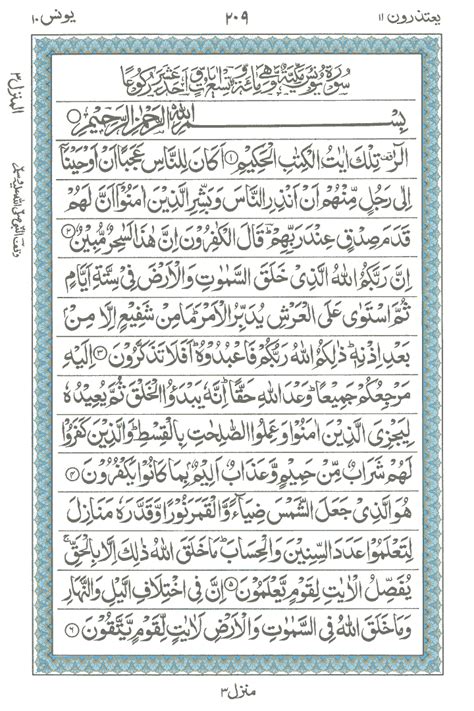 يعتذرون ١١
٢٠٩
يونس ١٠
المنزل ٣
سورة يونس مكية وهي مائة وتسع آيات وأحد عشر ركوعا
بِسْمِ اللهِ الرَّحْمٰنِ الرَّحِيْمِ
الٓرٰ تِلْكَ اٰيٰتُ الْكِتٰبِ الْحَكِيْمِ ١ اَكَانَ لِلنَّاسِ عَجَبًا اَنْ اَوْحَيْنَآ
اِلٰى رَجُلٍ مِّنْهُمْ اَنْ اَنْذِرِ النَّاسَ وَبَشِّرِ الَّذِيْنَ اٰمَنُوْٓا اَنَّ لَهُمْ
قَدَمَ صِدْقٍ عِنْدَ رَبِّهِمْ ؔ قَالَ الْكٰفِرُوْنَ اِنَّ هٰذَا لَسٰحِرٌ مُّبِيْنٌ ٢
اِنَّ رَبَّكُمُ اللهُ الَّذِيْ خَلَقَ السَّمٰوٰتِ وَالْاَرْضَ فِيْ سِتَّةِ اَيَّامٍ
ثُمَّ اسْتَوٰى عَلَى الْعَرْشِ يُدَبِّرُ الْاَمْرَ ؕ مَا مِنْ شَفِيْعٍ اِلَّا مِنْۢ
بَعْدِ اِذْنِهٖ ؕ ذٰلِكُمُ اللهُ رَبُّكُمْ فَاعْبُدُوْهُ ؕ اَفَلَا تَذَكَّرُوْنَ ٣ اِلَيْهِ
مَرْجِعُكُمْ جَمِيْعًا ؕ وَعْدَ اللهِ حَقًّا ؕ اِنَّهٗ يَبْدَؤُا الْخَلْقَ ثُمَّ يُعِيْدُهٗ
لِيَجْزِيَ الَّذِيْنَ اٰمَنُوْا وَعَمِلُوا الصّٰلِحٰتِ بِالْقِسْطِ ؕ وَالَّذِيْنَ كَفَرُوْا
لَهُمْ شَرَابٌ مِّنْ حَمِيْمٍ وَّعَذَابٌ اَلِيْمٌۢ بِمَا كَانُوْا يَكْفُرُوْنَ ٤
هُوَ الَّذِيْ جَعَلَ الشَّمْسَ ضِيَآءً وَّالْقَمَرَ نُوْرًا وَّقَدَّرَهٗ مَنَازِلَ
لِتَعْلَمُوْا عَدَدَ السِّنِيْنَ وَالْحِسَابَ ؕ مَا خَلَقَ اللهُ ذٰلِكَ اِلَّا بِالْحَقِّ ۚ
يُفَصِّلُ الْاٰيٰتِ لِقَوْمٍ يَّعْلَمُوْنَ ٥ اِنَّ فِي اخْتِلَافِ الَّيْلِ وَالنَّهَارِ
وَمَا خَلَقَ اللهُ فِي السَّمٰوٰتِ وَالْاَرْضِ لَاٰيٰتٍ لِّقَوْمٍ يَّتَّقُوْنَ ٦
منزل ٣